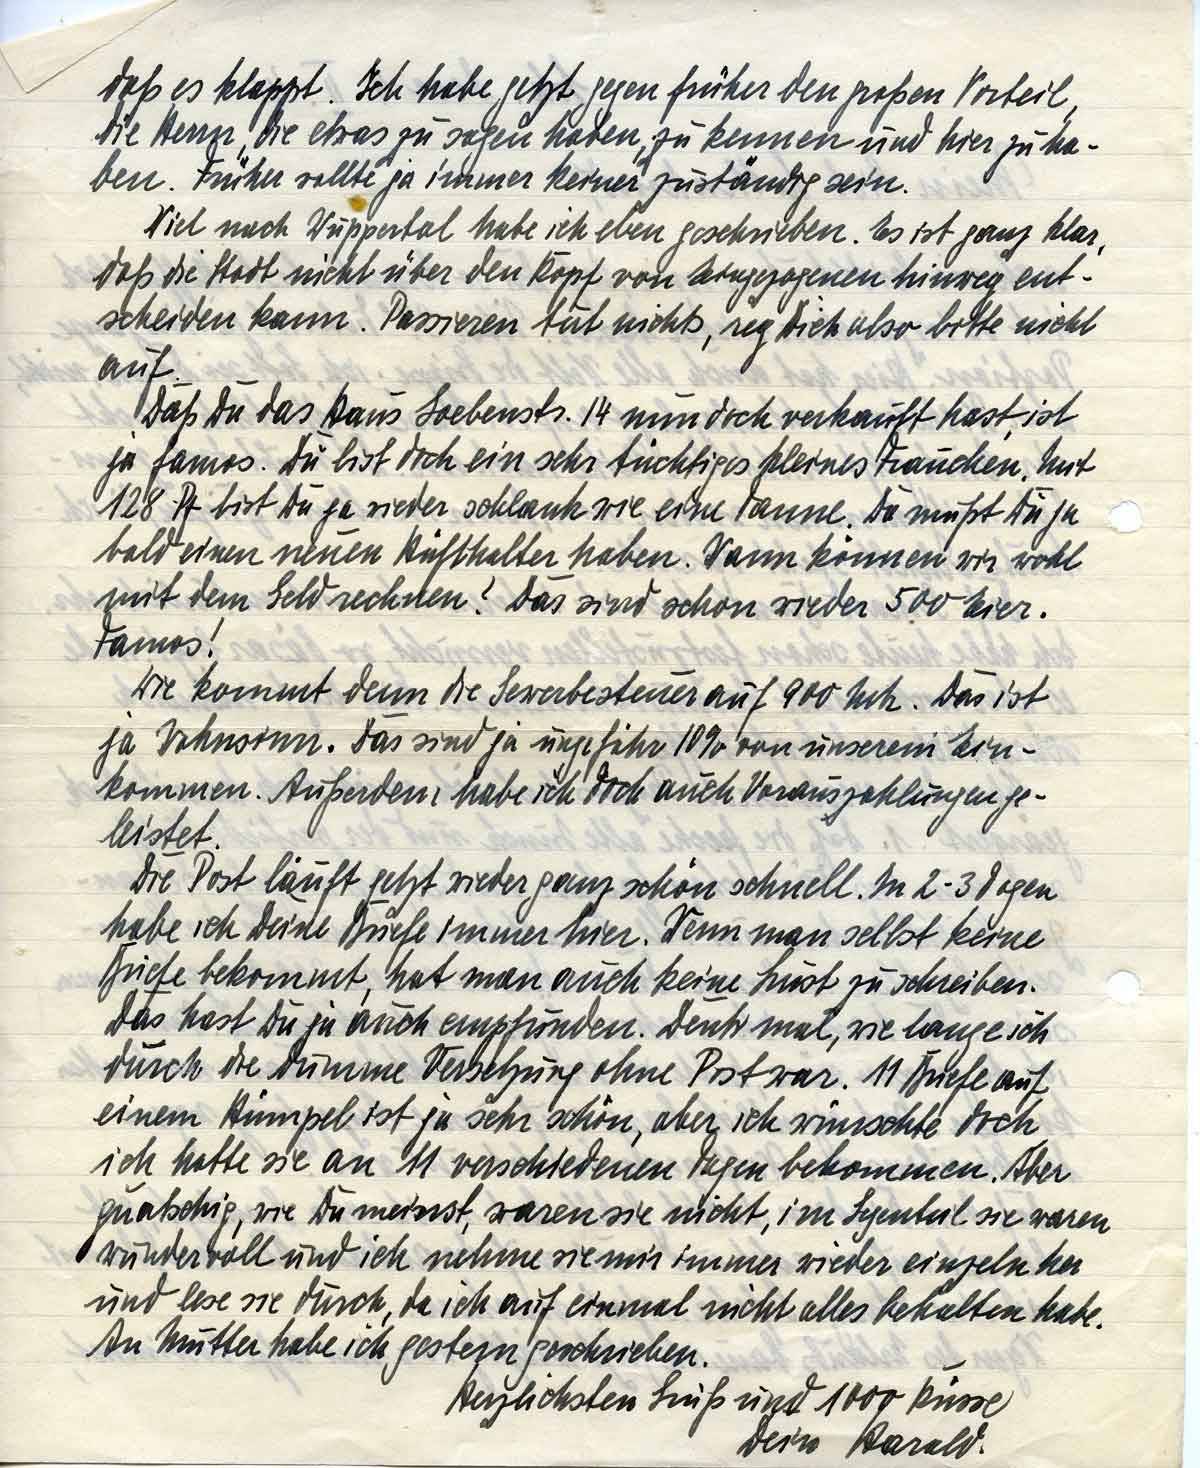 daß es klappt. Ich habe jetzt gegen früher den großen Vorteil,
die Herrn, die etwas zu sagen haben, zu kennen und hier zu ha-
ben. Früher wollte ja immer keiner zuständig sein.
Viel nach Wuppertal habe ich eben geschrieben. Es ist ganz klar,
daß die Stadt nicht über den Kopf von Eingezogenen hinweg ent-
scheiden kann. Passieren tut nichts, reg Dich also bitte nicht
auf.
Daß Du das Haus Loebenstr. 14 nun doch verkauft hast, ist
ja famos. Du bist doch ein sehr tüchtiges kleines Frauchen. Mit
128 Pf bist Du ja wieder schlank wie eine Tanne. Da mußt Du ja
bald einen neuen Hüfthalter haben. Wann können wir wohl
mit dem Geld rechnen? Das sind schon wieder 500 Eier.
Famos!
Wie kommt denn die Gewerbesteuer auf 900 Mk. Das ist
ja Wahnsinn. Das sind ja ungefähr 10% von unserem Ein-
kommen. Außerdem habe ich doch auch Vorauszahlungen ge-
leistet.
Die Post läuft jetzt wieder ganz schön schnell. In 2-3 Tagen
habe ich Deine Briefe immer hier. Wenn man selbst keine
Briefe bekommt, hat man auch keine Lust zu schreiben.
Das hast Du ja auch empfunden. Denk mal, wie lange ich
durch die dumme Versetzung ohne Post war. 11 Briefe auf
einem Hümpel ist ja sehr schön, aber ich wünschte doch
ich hätte sie an 11 verschiedenen Tagen bekommen. Aber
quatschig, wie Du meinst, waren sie nicht, im Gegenteil sie waren
wundervoll und ich nehme sie mir immer wieder einzeln her
und lese sie durch, da ich auf einmal nicht alles behalten habe.
An Mutter habe ich gestern geschrieben.
Herzlichsten Gruß und 1000 Küsse
Dein Harald.